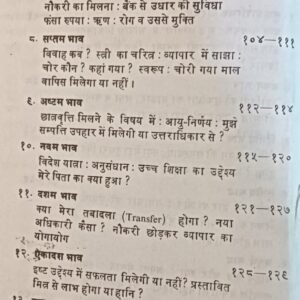 नौकरी का मिलना : बैंक से उधार की सुविधा
फंसा रुपया : ऋण : रोग व उससे मुक्ति
८. सप्तम भाव १०४—१११
विवाह कब ? स्त्री का चरित्र : व्यापार में साझा :
चोर कौन ? कहां गया ? स्वरूप : चोरी गया माल
वापिस मिलेगा या नहीं ।
९. अष्टम भाव ११२—११४
छात्रवृत्ति मिलने के विषय में : आयु-निर्णय : मुझे
सम्पत्ति उपहार में मिलेगी या उत्तराधिकार से ?
१०. नवम भाव ११५—१२०
विदेश यात्रा : अनुसंधान : उच्च शिक्षा का उद्देश्य
मेरे पिता का क्या हुआ ?
११. दशम भाव १२१—१२७
क्या मेरा तबादला (Transfer) होगा ? नया
अधिकारी कैसा ? नौकरी छोड़कर व्यापार का
योगायोग
१२. एकादश भाव १२८—१२९
इष्ट उद्देश्य में सफलता मिलेगी या नहीं? प्रस्तावित
मित्र से लाभ होगा या हानि ?